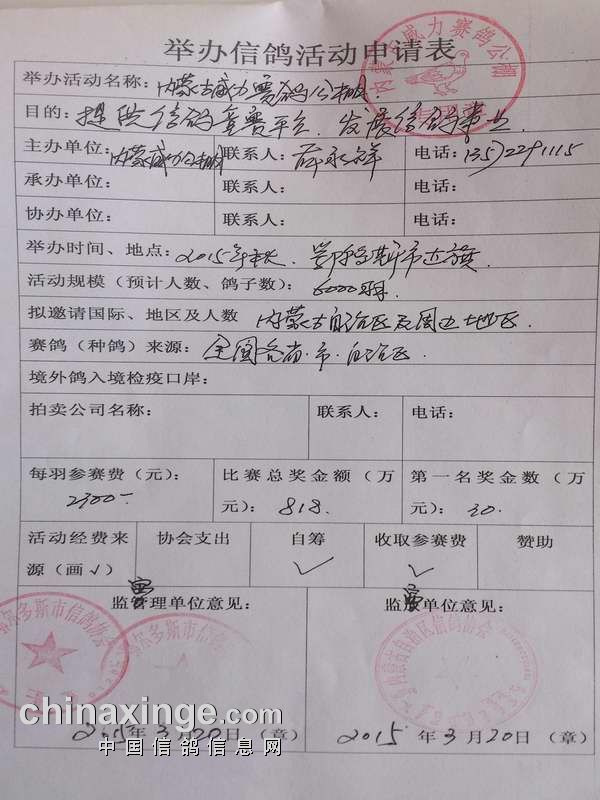 举办信鸽活动申请表
内蒙古威力赛鸽公棚
举办活动名称：内蒙古威力赛鸽公棚
目的：提供信鸽竞赛平台、发展信鸽事业
主办单位：内蒙威力公棚 联系人：薛永祥 电话：
承办单位： 联系人： 电话：
协办单位： 联系人： 电话：
举办时间、地点：2015年秋、鄂尔多斯市达旗
活动规模（预计人数、鸽子数）：6000羽
拟邀请国际、地区及人数 内蒙古自治区及周边地区
赛鸽（种鸽）来源：全国各省.市.自治区
境外鸽入境检疫口岸：
拍卖公司名称： 联系人： 电话：
每羽参赛费（元）： 比赛总奖金额（万 第一名奖金数（万
2300- 元）：818. 元）：30.
活动经费来 协会支出 自筹 收取参赛费 赞助
源（画√） √ √
监管理单位意见： 监赛单位意见：
尔多斯市信鸽协会
尔多斯市信鸽协会
内蒙古自治区信鸽协会
chinaxinge.com
2015年3月20日（章） 2015年3月20日（章）
中国信鸽信息网